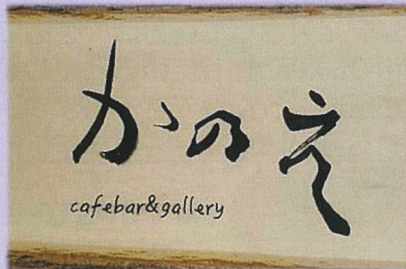 かのえ
cafebar&gallery